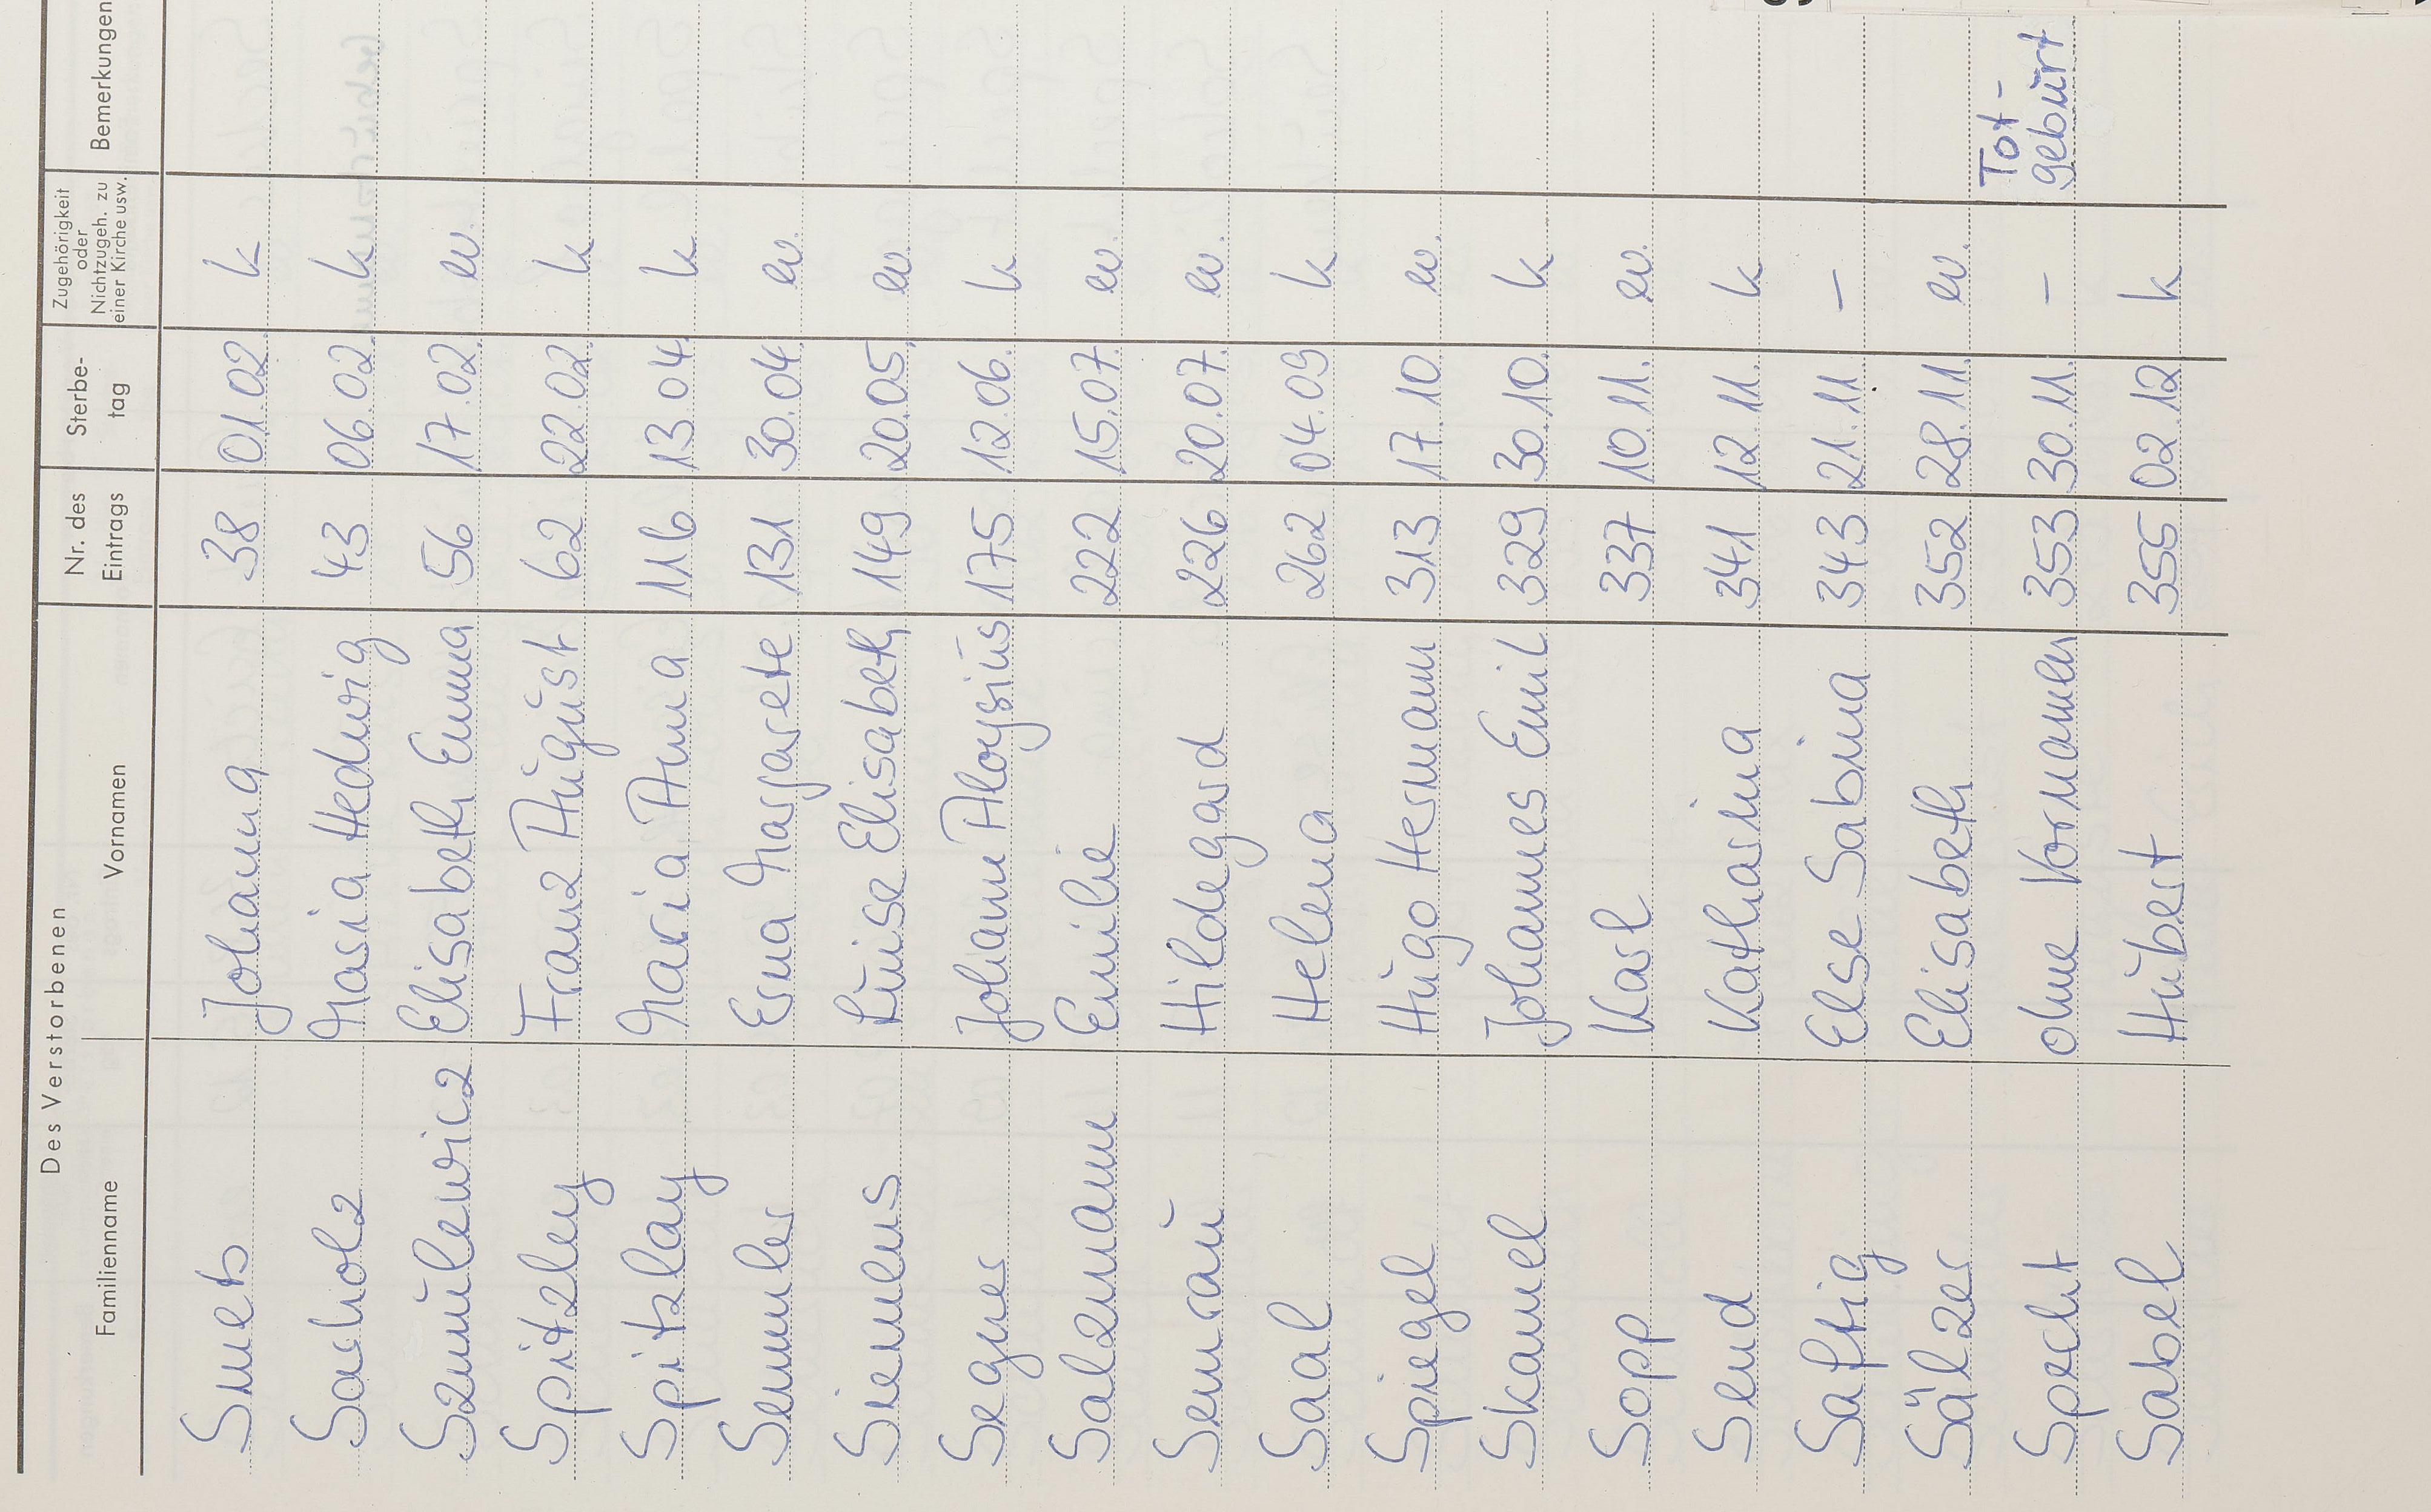 Des Verstorbenen
Familienname Vornamen Nr. des Eintrags Sterbe-tag Zugehörigkeit oder Nichtzugeh. zu einer Kirche usw. Bemerkungen
Smets Johanna 38 01.02. k
Sasholz Maria Hedwig 43 06.02. k
Szmulewicz Elisabeth Emma 56 17.02. ev.
Spitzley Franz August 62 22.02. k
Spitzlay Maria Anna 116 13.04. k
Semmler Erna Margarete 131 30.04. ev.
Siemens Luise Elisabeth 149 20.05. ev.
Segner Johann Aloysius 175 12.06. k
Salzmann Emilie 222 15.07. ev.
Semrau Hildegard 226 20.07. ev.
Saal Helena 262 04.09 k
Spiegel Hugo Hermann 313 17.10. ev.
Skamel Johannes Emil 329 30.10. k
Sopp Karl 337 10.11. ev.
Send Katharina 341 12.11. k
Saftig Else Sabina 343 21.11. –
Sälzer Elisabeth 352 28.11. ev.
Specht ohne Vornamen 353 30.11. – Tot-geburt
Sabel Hubert 355 02.12. k